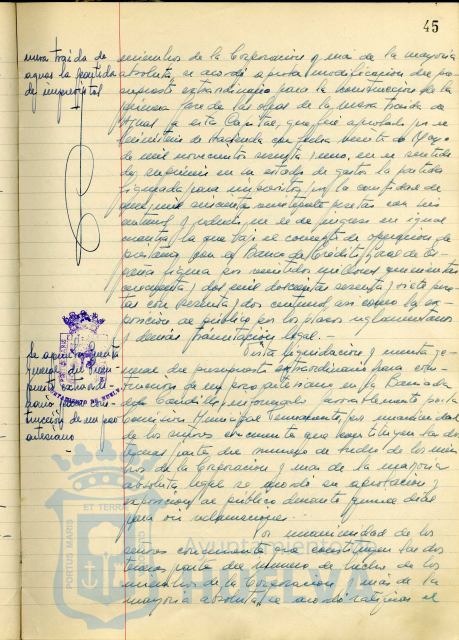 45
nueva traída de
aguas la partida
de imprevistos
miembros de la Corporación y más de la mayoría
absoluta, se acordó aprobar modificación del pre-
supuesto extraordinario para la construcción de la
primera fase de las obras de la nueva traída de
Aguas a esta Capital, que fué aprobado por el
Ministerio de Hacienda con fecha veinte de Mayo
de mil novecientos sesenta y uno, en el sentido
de suprimir en su estado de gastos la partida
figurada para imprevistos, por la cantidad de
mil
pesetas con
y reducir en el de ingresos en igual
cuantía la que bajo el concepto de operación de
préstamo con el Banco de Crédito Local de Es-
paña figura por
millones quinientas
cincuenta y dos mil doscientas sesenta y siete pese-
tas con sesenta y dos céntimos, así como la ex-
posición al público por los plazos reglamentarios
y demás tramitación legal.-
Se aprueba cuenta
general del Presu-
puesto extraordi-
nario para cons-
trucción de un pozo
artesiano
AYUNTAMIENTO DE HUELVA
Vista liquidación y cuenta ge-
neral del presupuesto extraordinario para cons-
trucción de un pozo artesiano en la Barriada
informado favorablemente por la
Comisión Municipal Permanente, por unanimidad
de los señores concurrentes que constituyen las dos
terceras partes del número de hecho de los miem-
bros de la Corporación y más de la mayoría
absoluta legal se acordó su aprobación y
exposición al público durante quince días
para oir reclamaciones.-
Por unanimidad de los
señores concurrentes que constituyen las dos
terceras partes del número de hecho de los
miembros de la Corporación y más de la
mayoría absoluta, se acordó ratificar el
PORTUS MARIS ET TERRAE
Ayuntamiento de
HUELVA